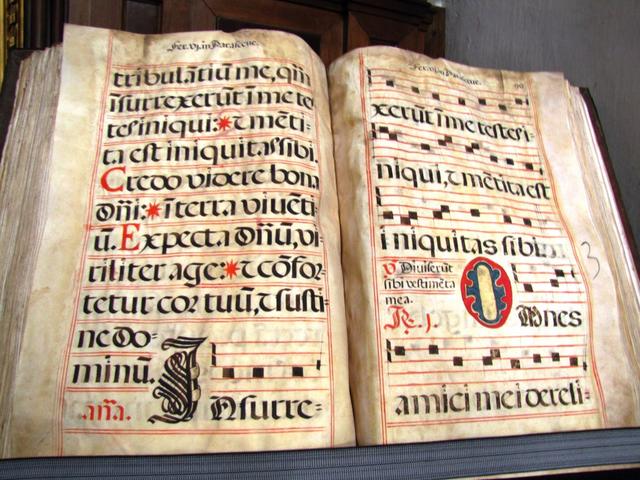 Fer. vj. in Parasceue.
tribulātiū me, qm̄
īsurrexerūt ī me te
tes iniqui:* τ mēti-
ta est iniquitas sibi.
Credo videre bona
dn̄i:* ī terra viuēti-
ū. Expecta dn̄ū, vi-
riliter age:* τ cōfor-
tetur cor tuū, τ susti-
ne do-
minū.
an̄a. Insurre-
Fer. vj. in Parasceue.
xerūt ī me testes i-
niqui, τ mētita est
iniquitas sibi.
3
℣ Diuiserūt
sibi vestimēta
mea.
℟. j. Omnes
amici mei dereli-